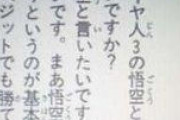 ヤ人3の悟空と
ですか?
空と言いたいです
です。まあ悟空
々というのが基本
ジットでも勝て